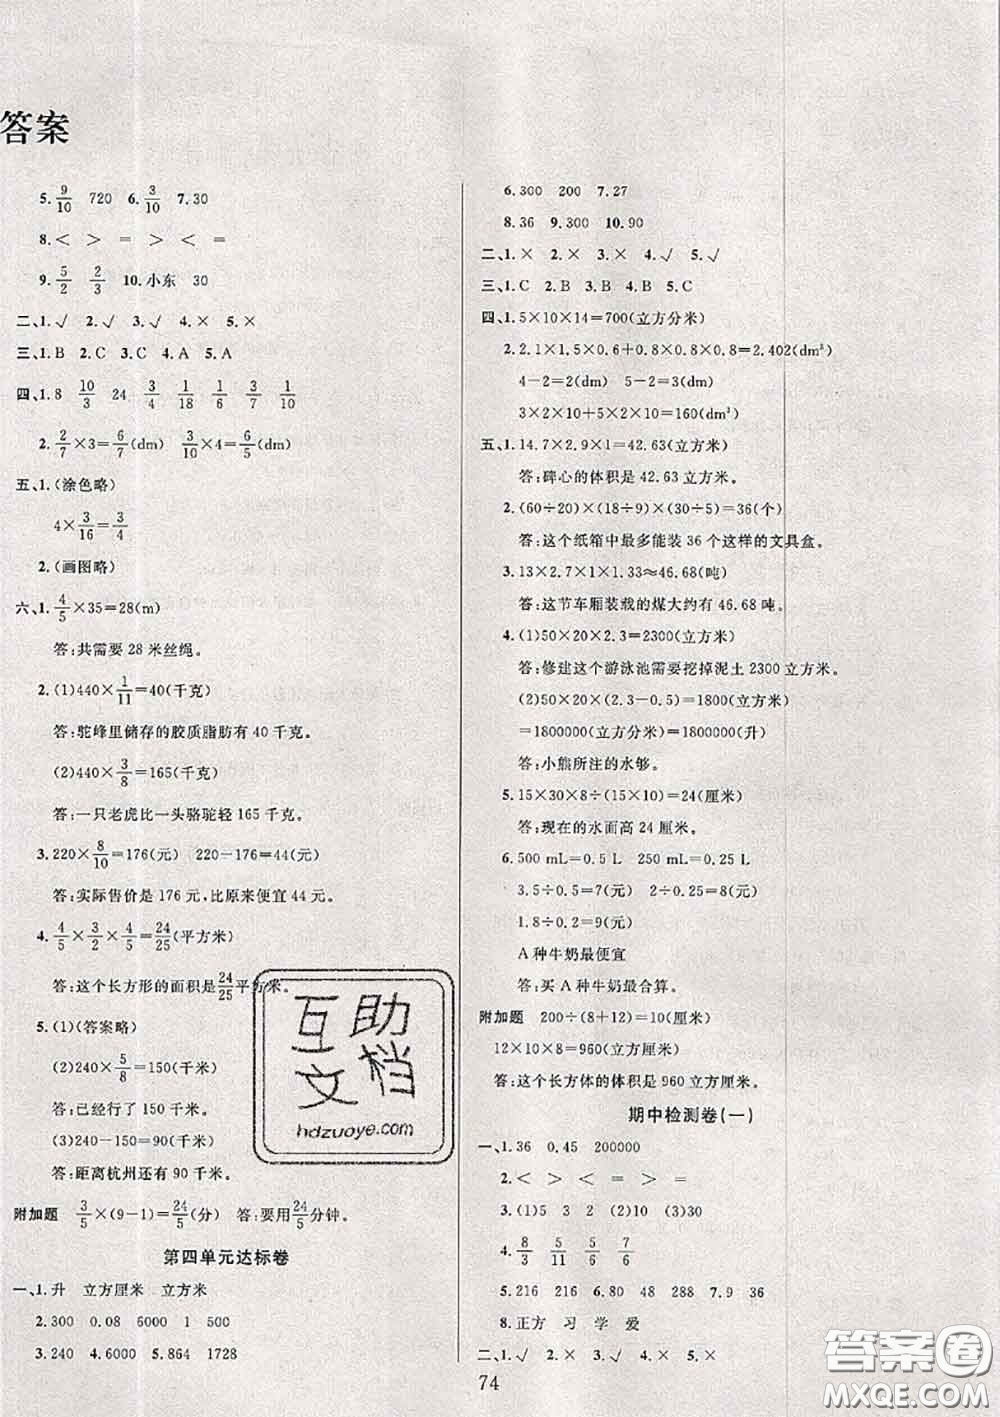 答案
5. 9/10 720 6. 3/10 7.30
8. < > = > < =
9. 5/2 2/3 10.小东 30
二、1.√ 2.√ 3.√ 4.× 5.×
三、1.B 2.C 3.C 4.A 5.A
四、1.8 10/3 24 3/4 1/18 1/6 3/7 1/10
2. 2/7×3=6/7(dm) 3/10×4=6/5(dm)
五、1.(涂色略)
4×3/16=3/4
2.(画图略)
六、1. 4/5×35=28(m)
答:共需要 28 米丝绳。
2.(1)440×1/11=40(千克)
答:驼峰里储存的胶质脂肪有 40 千克。
(2)440×3/8=165(千克)
答:一只老虎比一头骆驼轻 165 千克。
3. 220×8/10=176(元) 220-176=44(元)
答:实际售价是 176 元,比原来便宜 44 元。
4. 4/5×3/2×4/5=24/25(平方米)
答:这个长方形的面积是24/25平方米。
5.(1)(答案略)
(2)240×5/8=150(千米)
答:已经行了 150 千米。
(3)240-150=90(千米)
答:距离杭州还有 90 千米。
附加题 3/5×(9-1)=24/5(分) 答:要用24/5分钟。
第四单元达标卷
一、1.升 立方厘米 立方米
2.300 0.08 6000 1 500
3.240 4.6000 5.864 1728
6.300 200 7.27
8.36 9.300 10.90
二、1.× 2.× 3.× 4.√ 5.√
三、1.C 2.B 3.C 4.B 5.C
四、1.5×10×14=700(立方分米)
2.2.1×1.5×0.6+0.8×0.8×0.8=2.402(dm³)
4-2=2(dm) 5-2=3(dm)
3×2×10+5×2×10=160(dm³)
五、1.14.7×2.9×1=42.63(立方米)
答:碑心的体积是 42.63 立方米。
2.(60÷20)×(18÷9)×(30÷5)=36(个)
答:这个纸箱中最多能装 36 个这样的文具盒。
3.13×2.7×1×1.33≈46.68(吨)
答:这节车厢装载的煤大约有 46.68 吨。
4.(1)50×20×2.3=2300(立方米)
答:修建这个游泳池需要挖掉泥土 2300 立方米。
(2)50×20×(2.3-0.5)=1800(立方米)
=1800000(立方分米)=1800000(升)
答:小熊所注的水够。
5.15×30×8÷(15×10)=24(厘米)
答:现在的水面高 24 厘米。
6.500 mL=0.5 L 250 mL=0.25 L
3.5÷0.5=7(元) 2÷0.25=8(元)
1.8÷0.2=9(元)
A 种牛奶最便宜
答:买 A 种牛奶最合算。
附加题 200÷(8+12)=10(厘米)
12×10×8=960(立方厘米)
答:这个长方体的体积是 960 立方厘米。
期中检测卷(一)
一、1.36 0.45 200000
2. < < > = = =
3.(1)5 3a² (2)3a (3)2
4. 8/3 5/11 5/6 7/6
5.216 216 6.80 48 288 7.9 36
8.正方 习 学 爱
二、1.√ 2.√ 3.× 4.√ 5.×
74
互助
文档
hdzuoye.com
答案圈
MXQE.COM